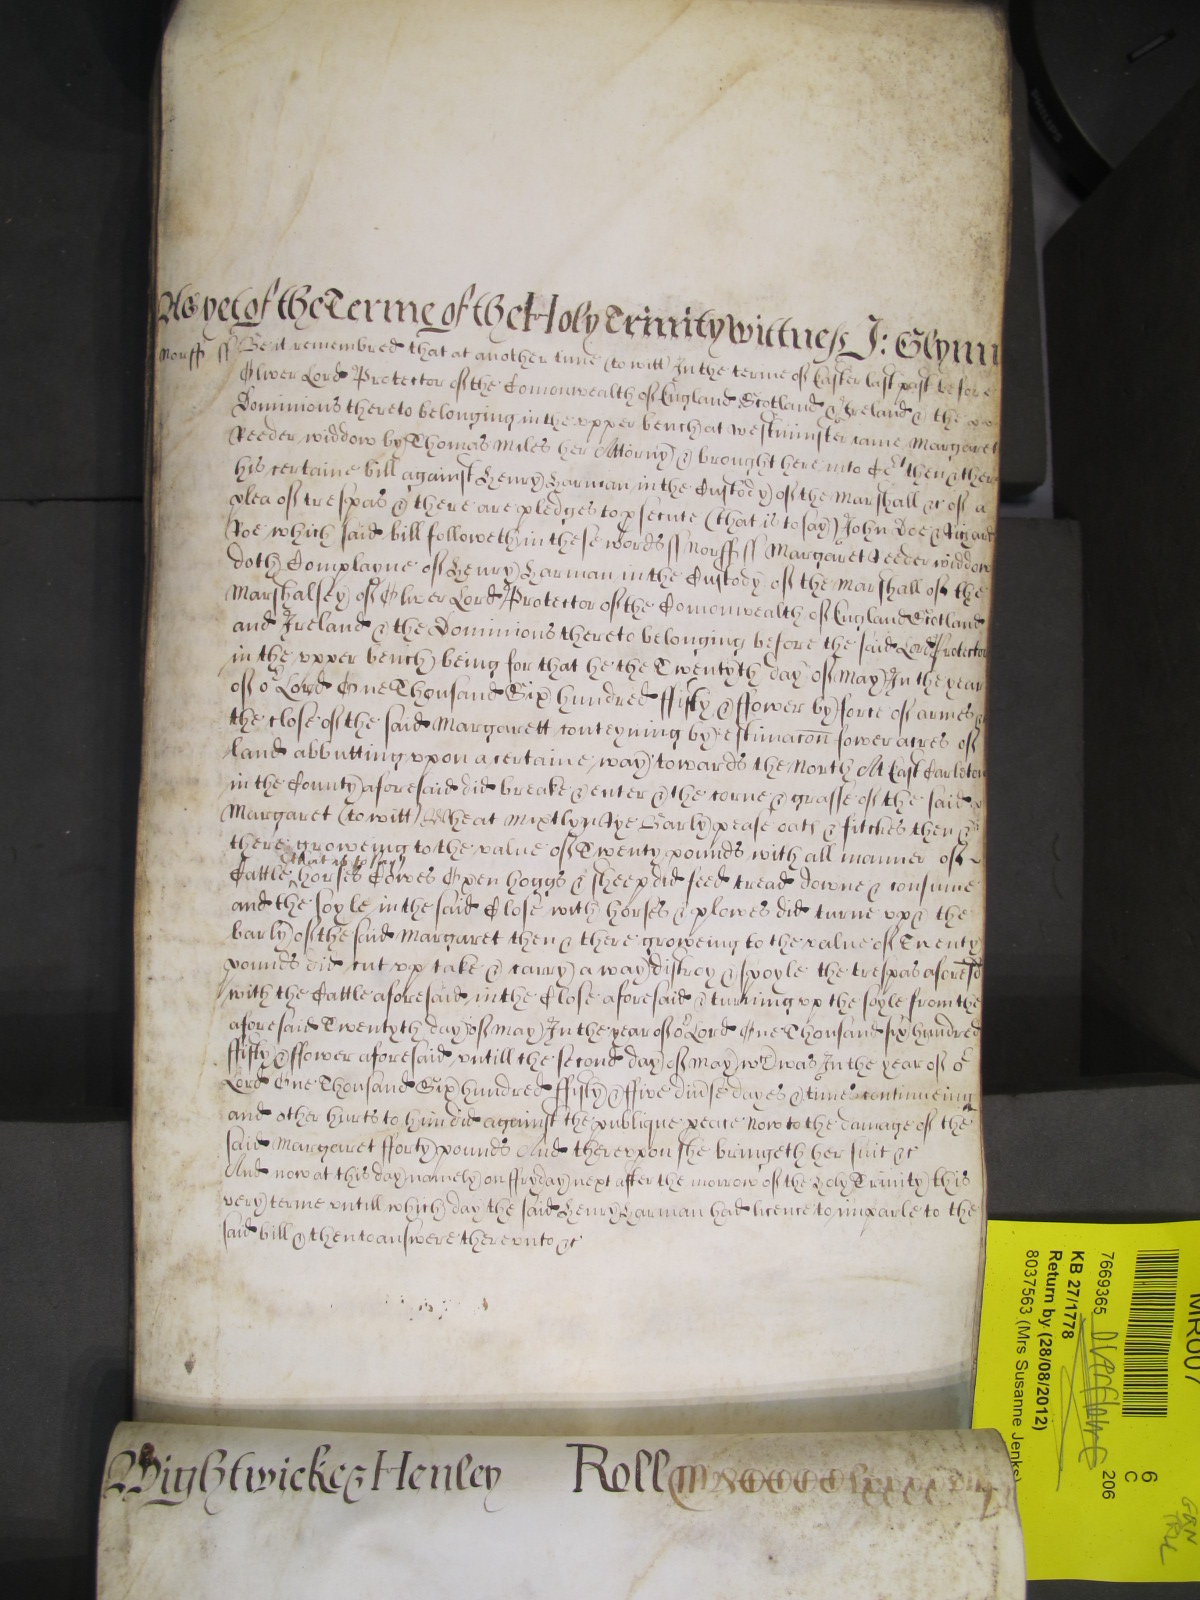 As yet of the Terme of the Holy Trinity Wittness J: Glynn
Norff ss Be it remembred that at another time (to witt) In the terme of Easter last past before
Oliver Lord Protector of the Comonwealth of England Scotland & Ireland & the
Dominions thereto belonging in the upper bench at Westminster came Margaret
Reeder widdow by Thomas Miles her Attorny & brought here into Ct then & there
his certaine bill against Henry Harman in the Custody of the Marshall &c of a
plea of trespas & there are pledges to psecute (that is to say) John Doe & Richard
Roe which said bill followeth in these words ss Norff ss Margaret Reeder widdow
doth Complayne of Henry Harman in the Custody of the Marshall of the
Marshalsey of Oliver Lord Protector of the Comonwealth of England Scotland
and Ireland & the Dominions thereto belonging before the said Lord Protector
in the upper bench being for that he the Twentyth day of May In the year
of or Lord One Thousand Six hundred ffifty & ffower by force of armes
the close of the said Margarett conteyning by estimacon fower acres of
land abbutting upon a certaine way towards the North At East Carleton
in the County aforesaid did breake & enter & the corne & grasse of the said
Margaret (to witt) Wheat Mixtlyn Rye Barly pease oats & fitches then &
there groweing to the value of Twenty pounds with all manner of
(that is to say)
Cattle horses Cowes Oxen hoggs & sheep did feed tread downe & consume
and the soyle in the said Close with horses & plowes did turne up & the
barly of the said Margaret then & there groweing to the value of Twenty
pounds did cut up take & carry away distroy & spoyle the trespas aforesd
with the Cattle aforesaid in the Close aforesaid & turning up the soyle from the
aforesaid Twentyth day of May In the year of or Lord One Thousand six hundred
ffifty & ffower aforesaid untill the second day of May wch was In the year of or
Lord One Thousand Six hundred ffifty & ffive divse dayes & times continueing
and other hurts to him did against the publique peace Now to the damage of the
said Margaret fforty pounds And thereupon she bringeth her suit &c
And now at this day namely on ffryday next after the morrow of the Holy Trinity this
very terme untill which day the said Henry Harman had licence to imparle to the
said bill & then to answere thereunto &c
Wightwicke & Henley Roll
MR007
6
C
206
7669365
KB 27/1778
Return by (28/08/2012)
8037563 (Mrs Susanne Jenks)